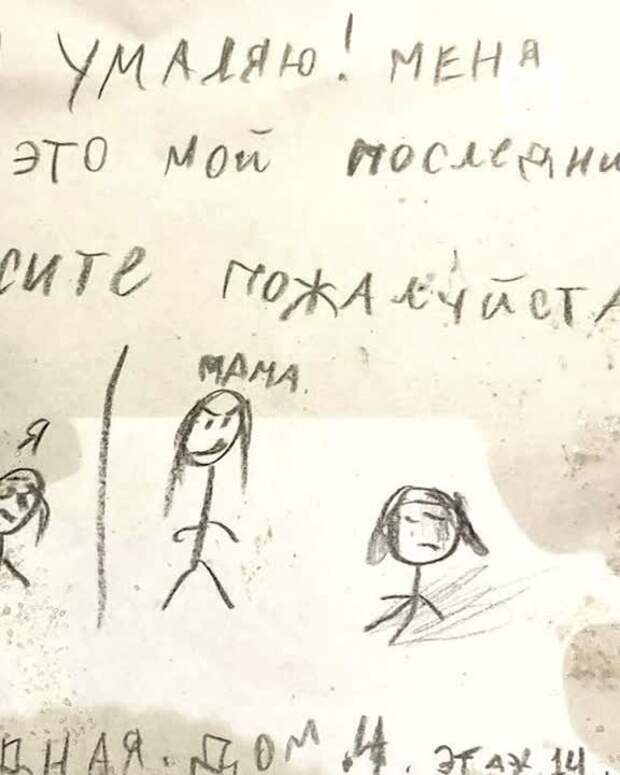 УМАЛЯЮ! МЕНЯ
ЭТО МОЙ последни
сите пожалуйста
МАМА
Я
дная. Дом 4. этаж 14.